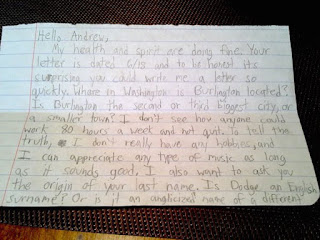 Hello, Andrew,
My health and spirit are doing fine. Your
letter is dated 6/13 and to be honest its
surprising you could write me a letter so
quickly. Where in Washington is Burlington located?
Is Burlington the second or third biggest city, or
a smaller town? I don't see how anyone could
work 80 hours a week and not quit. To tell the
truth, I don't really have any hobbies, and
I can appreciate any type of music as long
as it sounds good. I also want to ask you
the origin of your last name. Is Dodge an English
surname? Or is it an anglicized name of a different